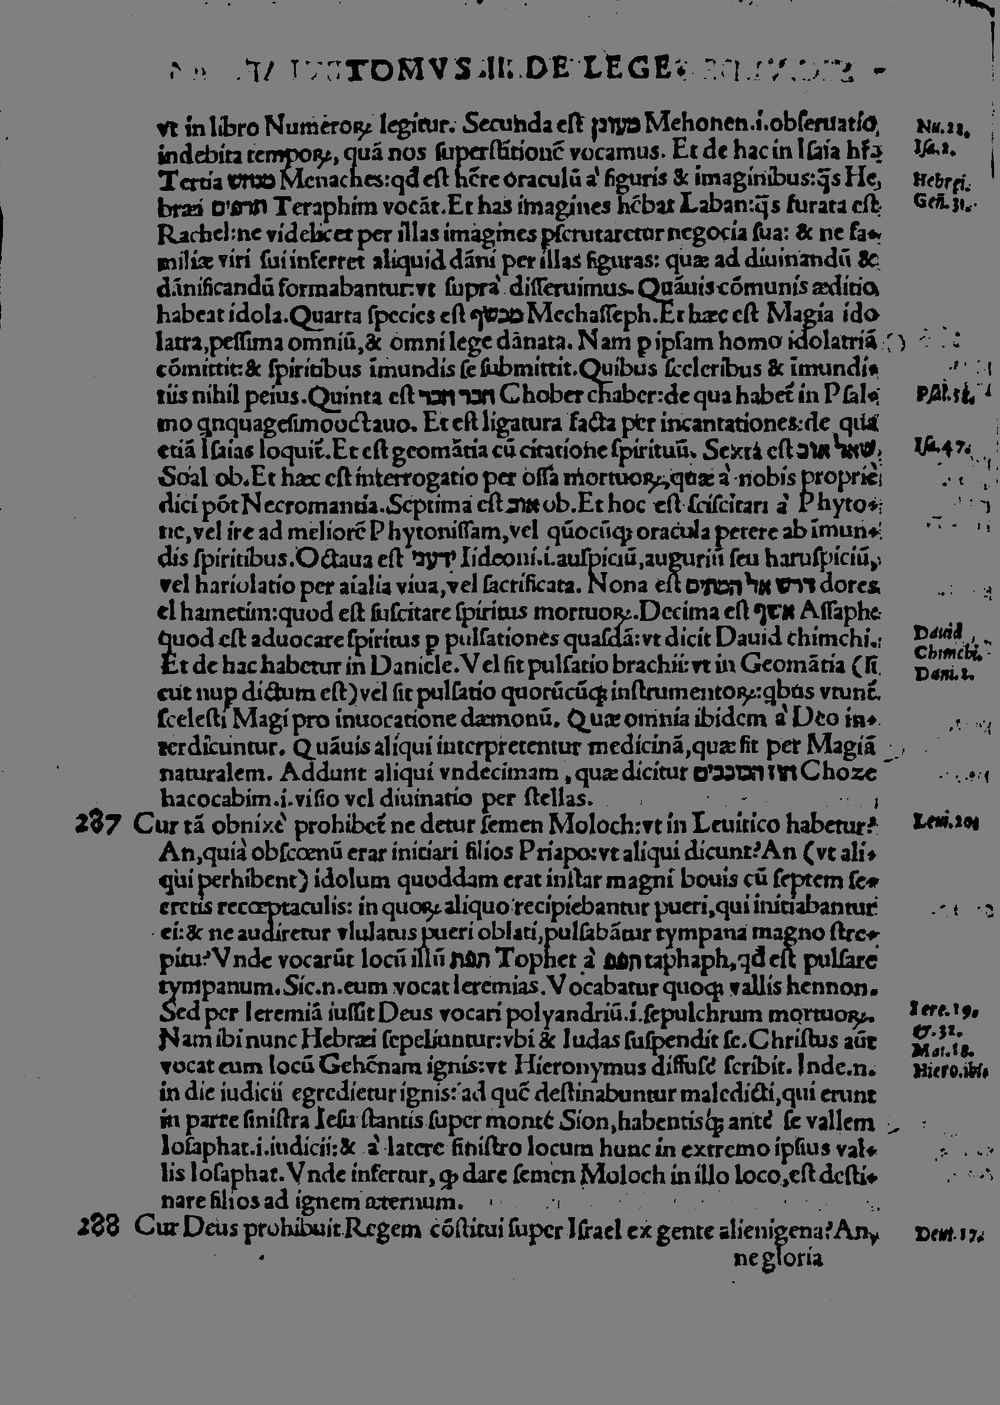 TOMVS.III.DE LEGE
vt in libro Numeroꝝ legitur. Secunda est מעונן Mehonen.i.obseruatio
indebita tempoꝝ, quã nos superstitionẽ vocamus. Et de hac in Isaia hr̃.
Tertia מנחש Menaches:qđ est hẽre oraculũ à figuris & imaginibus:q̃s He
bræi תרפים Teraphim vocãt.Et has imagines hẽbat Laban:q̃s furata est
Rachel:ne videlicet per illas imagines pscrutaretur negocia sua: & ne fa-
miliæ viri sui inferret aliquid dãni per illas figuras: quæ ad diuinandũ &
dãnificandũ formabantur:vt suprà disseruimus. Quãuis cõmunis æditio
habeat idola.Quarta species est מכשף Mechasseph.Et hæc est Magia ido
latra,pessima omniũ,& omni lege dãnata. Nam p ipsam homo idolatriã
cõmittit:& spiritibus ĩmundis se submittit.Quibus sceleribus & ĩmundi-
tiis nihil peius.Quinta est חבר חבר Chober chaber:de qua habet̃ in Psal-
mo qnquagesimooctauo. Et est ligatura facta per incantationes:de qua
etiã Isaias loquit̃.Et est geomãtia cũ citatione spirituũ. Sexta est שואל אוב
Soal ob.Et hæc est interrogatio per ossa mortuoꝝ,quæ à nobis propriè
dici põt Necromantia.Septima est אוב ob.Et hoc est sciscitari à Phyto-
ne,vel ire ad meliorẽ Phytonissam,vel quocũꝗ oracula petere ab ĩmun-
dis spiritibus.Octaua est ידעני Iideoni.i.auspiciũ,auguriũ seu haruspiciũ,
vel hariolatio per aĩalia viua,vel sacrificata. Nona est דרש אל המתים dores
el hametim:quod est suscitare spiritus mortuoꝝ.Decima est אשף Assaphe
quod est aduocare spiritus p pulsationes quasdã:vt dicit Dauid chimchi.
Et de hac habetur in Daniele.Vel sit pulsatio brachii:vt in Geomãtia (si
cut nup dictum est) vel sit pulsatio quorũcũꝗ instrumentoꝝ:qbus vtunt̃
scelesti Magi pro inuocatione dæmonũ. Quæ omnia ibidem à Deo in-
terdicuntur. Quãuis aliqui interpretentur medicinã,quæ fit per Magiã
naturalem. Addunt aliqui vndecimam, quæ dicitur חוזה הכוכבים Choze
hacocabim.i.visio vel diuinatio per stellas.
287 Cur tã obnixè prohibet̃ ne detur semen Moloch:vt in Leuitico habetur?
An,quià obscœnũ erat initiari filios Priapo:vt aliqui dicunt?An (vt ali-
qui perhibent) idolum quoddam erat instar magni bouis cũ septem se-
cretis recœptaculis: in quoꝝ aliquo recipiebantur pueri,qui initiabantur
ei:& ne audiretur vlulatus pueri oblati,pulsabãtur tympana magno stre-
pitu?Vnde vocarũt locũ illũ תפת Tophet à תפף taphaph,qđ est pulsare
tympanum.Sic.n.eum vocat Ieremias.Vocabatur quoꝗ vallis hennon.
Sed per Ieremiã iussit Deus vocari polyandriũ.i.sepulchrum mortuoꝝ.
Nam ibi nunc Hebræi sepeliuntur:vbi & Iudas suspendit se.Christus aũt
vocat eum locũ Gehẽnam ignis:vt Hieronymus diffusè scribit. Inde.n.
in die iudicii egredietur ignis:ad quẽ destinabuntur maledicti,qui erunt
in parte sinistra Iesu stantis super montẽ Sion,habentisꝗ antè se vallem
Iosaphat.i.iudicii:& à latere sinistro locum hunc in extremo ipsius val-
lis Iosaphat.Vnde infertur, ꝙ dare semen Moloch in illo loco,est desti-
nare filios ad ignem æternum.
288 Cur Deus prohibuit Regem cõstitui super Israel ex gente alienigena?An,
ne gloria
Nu.22.
Isa.2.
Hebrei.
Geñ.31.
Psal.58.
Isa.47.
Dauid
Chimchi.
Dani.2.
Leui.20.
Iere.19.
&.32.
Mat.18.
Hiero.ibi.
Deut.17.